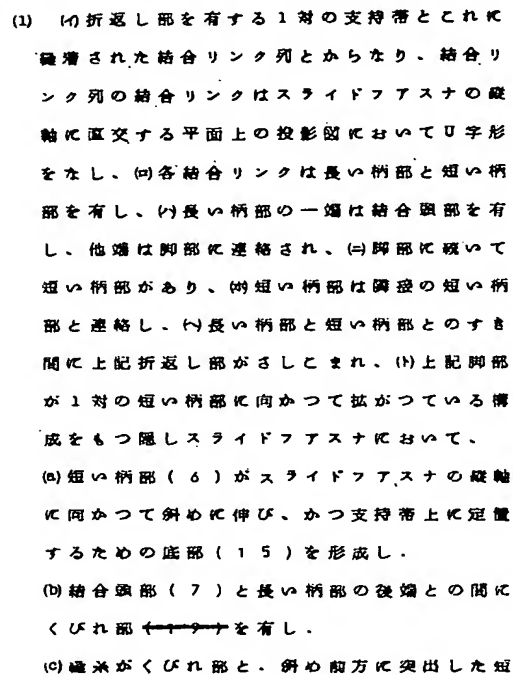 (1) (イ)折返し部を有する1対の支持帯とこれに
縫着された結合リンク列とからなり、結合リ
ンク列の結合リンクはスライドフアスナの縦
軸に直交する平面上の投影図においてU字形
をなし、(ロ)各結合リンクは長い柄部と短い柄
部を有し、(ハ)長い柄部の一端は結合頭部を有
し、他端は脚部に連絡され、(ニ)脚部に続いて
短い柄部があり、(ホ)短い柄部は隣接の短い柄
部と連絡し、(ヘ)長い柄部と短い柄部とのすき
間に上記折返し部がさしこまれ、(ト)上記脚部
が1対の短い柄部に向かつて拡がつている構
成をもつ隠しスライドフアスナにおいて、
(a)短い柄部(6)がスライドフアスナの縦軸
に向かつて斜めに伸び、かつ支持帯上に定置
するための底部(15)を形成し、
(b)結合頭部(7)と長い柄部の後端との間に
くびれ部(19)を有し、
(c)縫糸がくびれ部と、斜め前方に突出した短